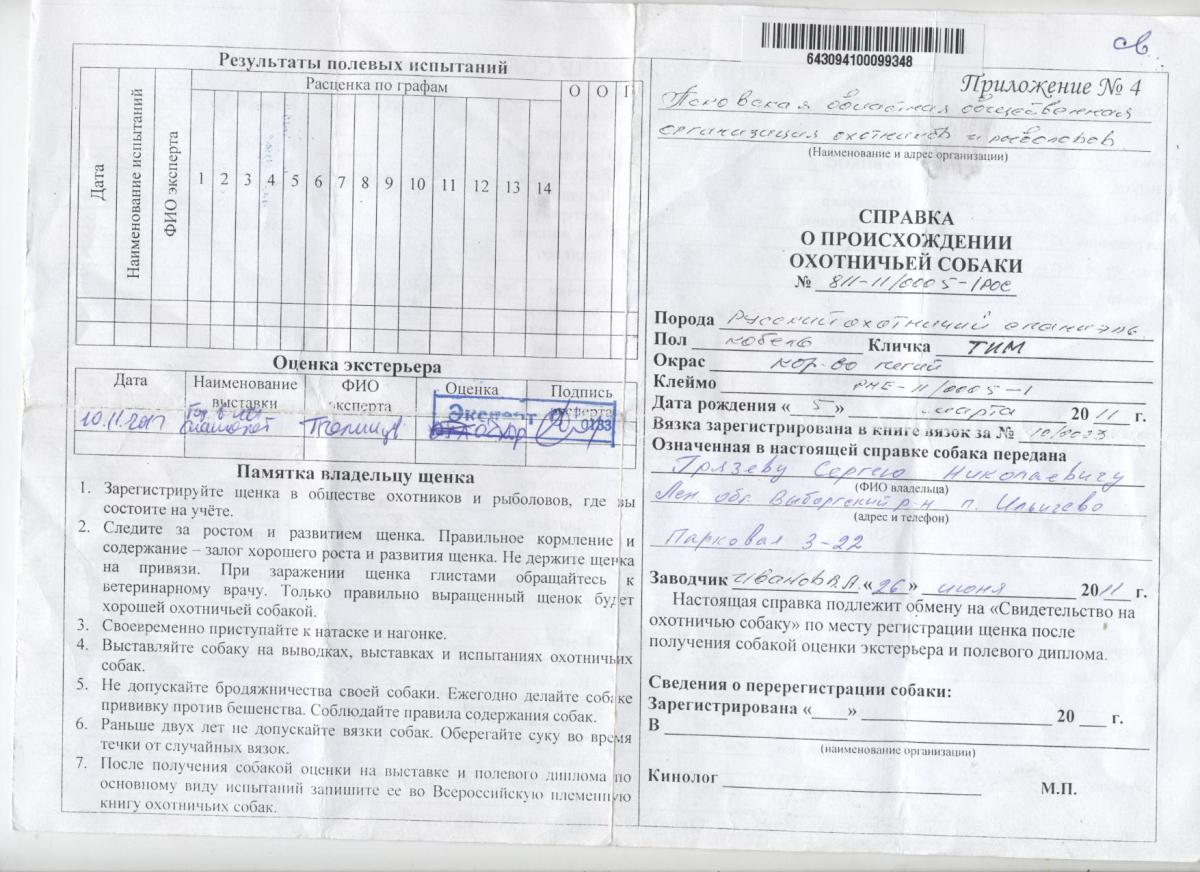 Результаты полевых испытаний
Дата
Наименование испытаний
ФИО эксперта
Расценка по графам
О О П
1 2 3 4 5 6 7 8 9 10 11 12 13 14
Оценка экстерьера
Дата Наименование выставки ФИО эксперта Оценка Подпись эксперта
10.11.2011
Эксперт
0133
Памятка владельцу щенка
1. Зарегистрируйте щенка в обществе охотников и рыболовов, где вы
состоите на учёте.
2. Следите за ростом и развитием щенка. Правильное кормление и
содержание – залог хорошего роста и развития щенка. Не держите щенка
на привязи. При заражении щенка глистами обращайтесь к
ветеринарному врачу. Только правильно выращенный щенок будет
хорошей охотничьей собакой.
3. Своевременно приступайте к натаске и нагонке.
4. Выставляйте собаку на выводках, выставках и испытаниях охотничьих
собак.
5. Не допускайте бродяжничества своей собаки. Ежегодно делайте собаке
прививку против бешенства. Соблюдайте правила содержания собак.
6. Раньше двух лет не допускайте вязки собак. Оберегайте суку во время
течки от случайных вязок.
7. После получения собакой оценки на выставке и полевого диплома по
основному виду испытаний запишите ее во Всероссийскую племенную
книгу охотничьих собак.
643094100099348
св
Приложение № 4
Псковская областная общественная
организация охотников и рыболовов
(Наименование и адрес организации)
СПРАВКА
О ПРОИСХОЖДЕНИИ
ОХОТНИЧЬЕЙ СОБАКИ
№ 811-11/0005-1РОС
Порода Русский охотничий спаниэль
Пол кобель Кличка ТИМ
Окрас кор-во пегий
Клеймо РНБ-11/0005-1
Дата рождения « 5 » марта 20 11 г.
Вязка зарегистрирована в книге вязок за № 10/0033
Означенная в настоящей справке собака передана
Грязеву Сергею Николаевичу
(ФИО владельца)
Лен обл. Выборгский р-н п. Ильичево
(адрес и телефон)
Парковая 3-22
Заводчик Иванов В.А. « 26 » июня 2011 г.
Настоящая справка подлежит обмену на «Свидетельство на
охотничью собаку» по месту регистрации щенка после
получения собакой оценки экстерьера и полевого диплома.
Сведения о перерегистрации собаки:
Зарегистрирована «____» ____ 20 ___ г.
В
(наименование организации)
Кинолог
М.П.